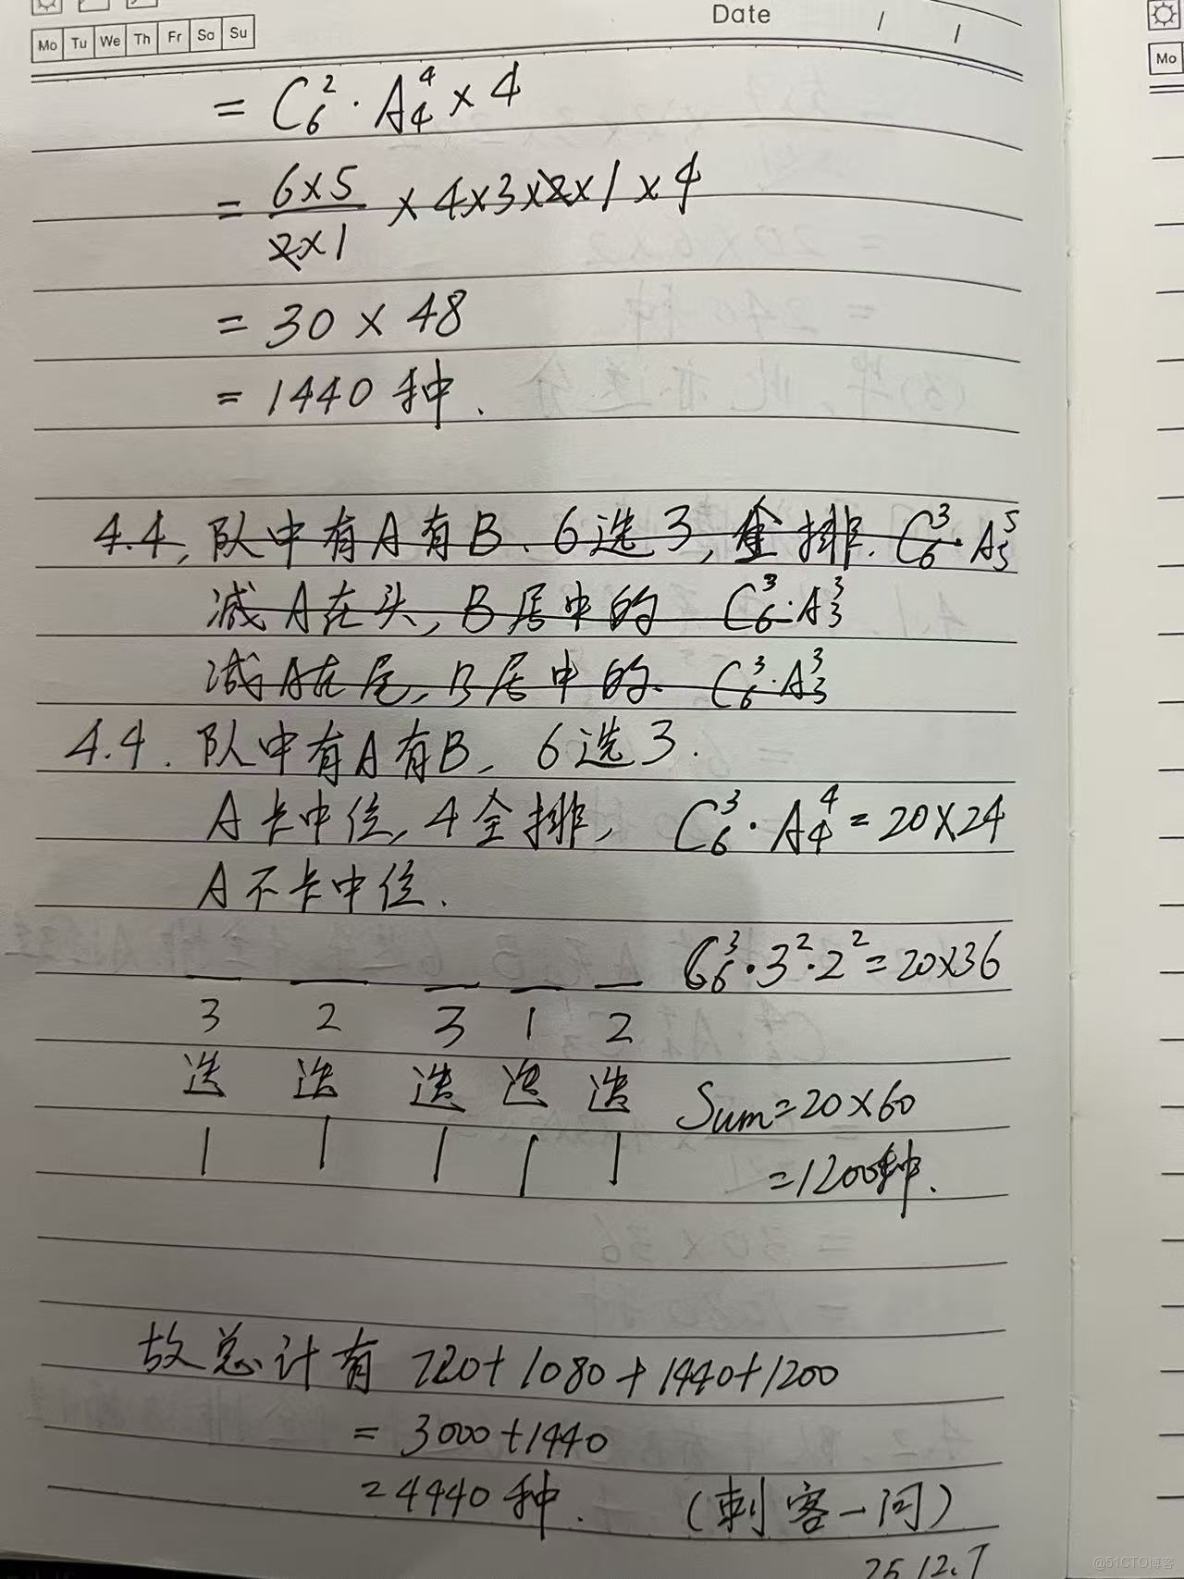 Date / /
Mo Tu We Th Fr Sa Su
Mo
= C₆² · A₄⁴ × 4
= 6×5 / 2×1 × 4×3×2×1 × 4
= 30 × 48
= 1440 种.
4.4, 队中有A有B、6选3, 全排. C₆³·A₅⁵
减A在头, B居中的 C₆³·A₃³
减A在尾, B居中的. C₆³·A₃³
4.4. 队中有A有B, 6选3.
A卡中位, 4全排, C₆³·A₄⁴=20×24
A不卡中位.
C₆³·3²·2²=20×36
3 2 3 1 2
选 选 选 选 选 Sum=20×60
1 1 1 1 1 =1200种.
故总计有 720+1080+1440+1200
= 3000+1440
=4440种. (刺客一问)
25.12.7
@51CTO博客